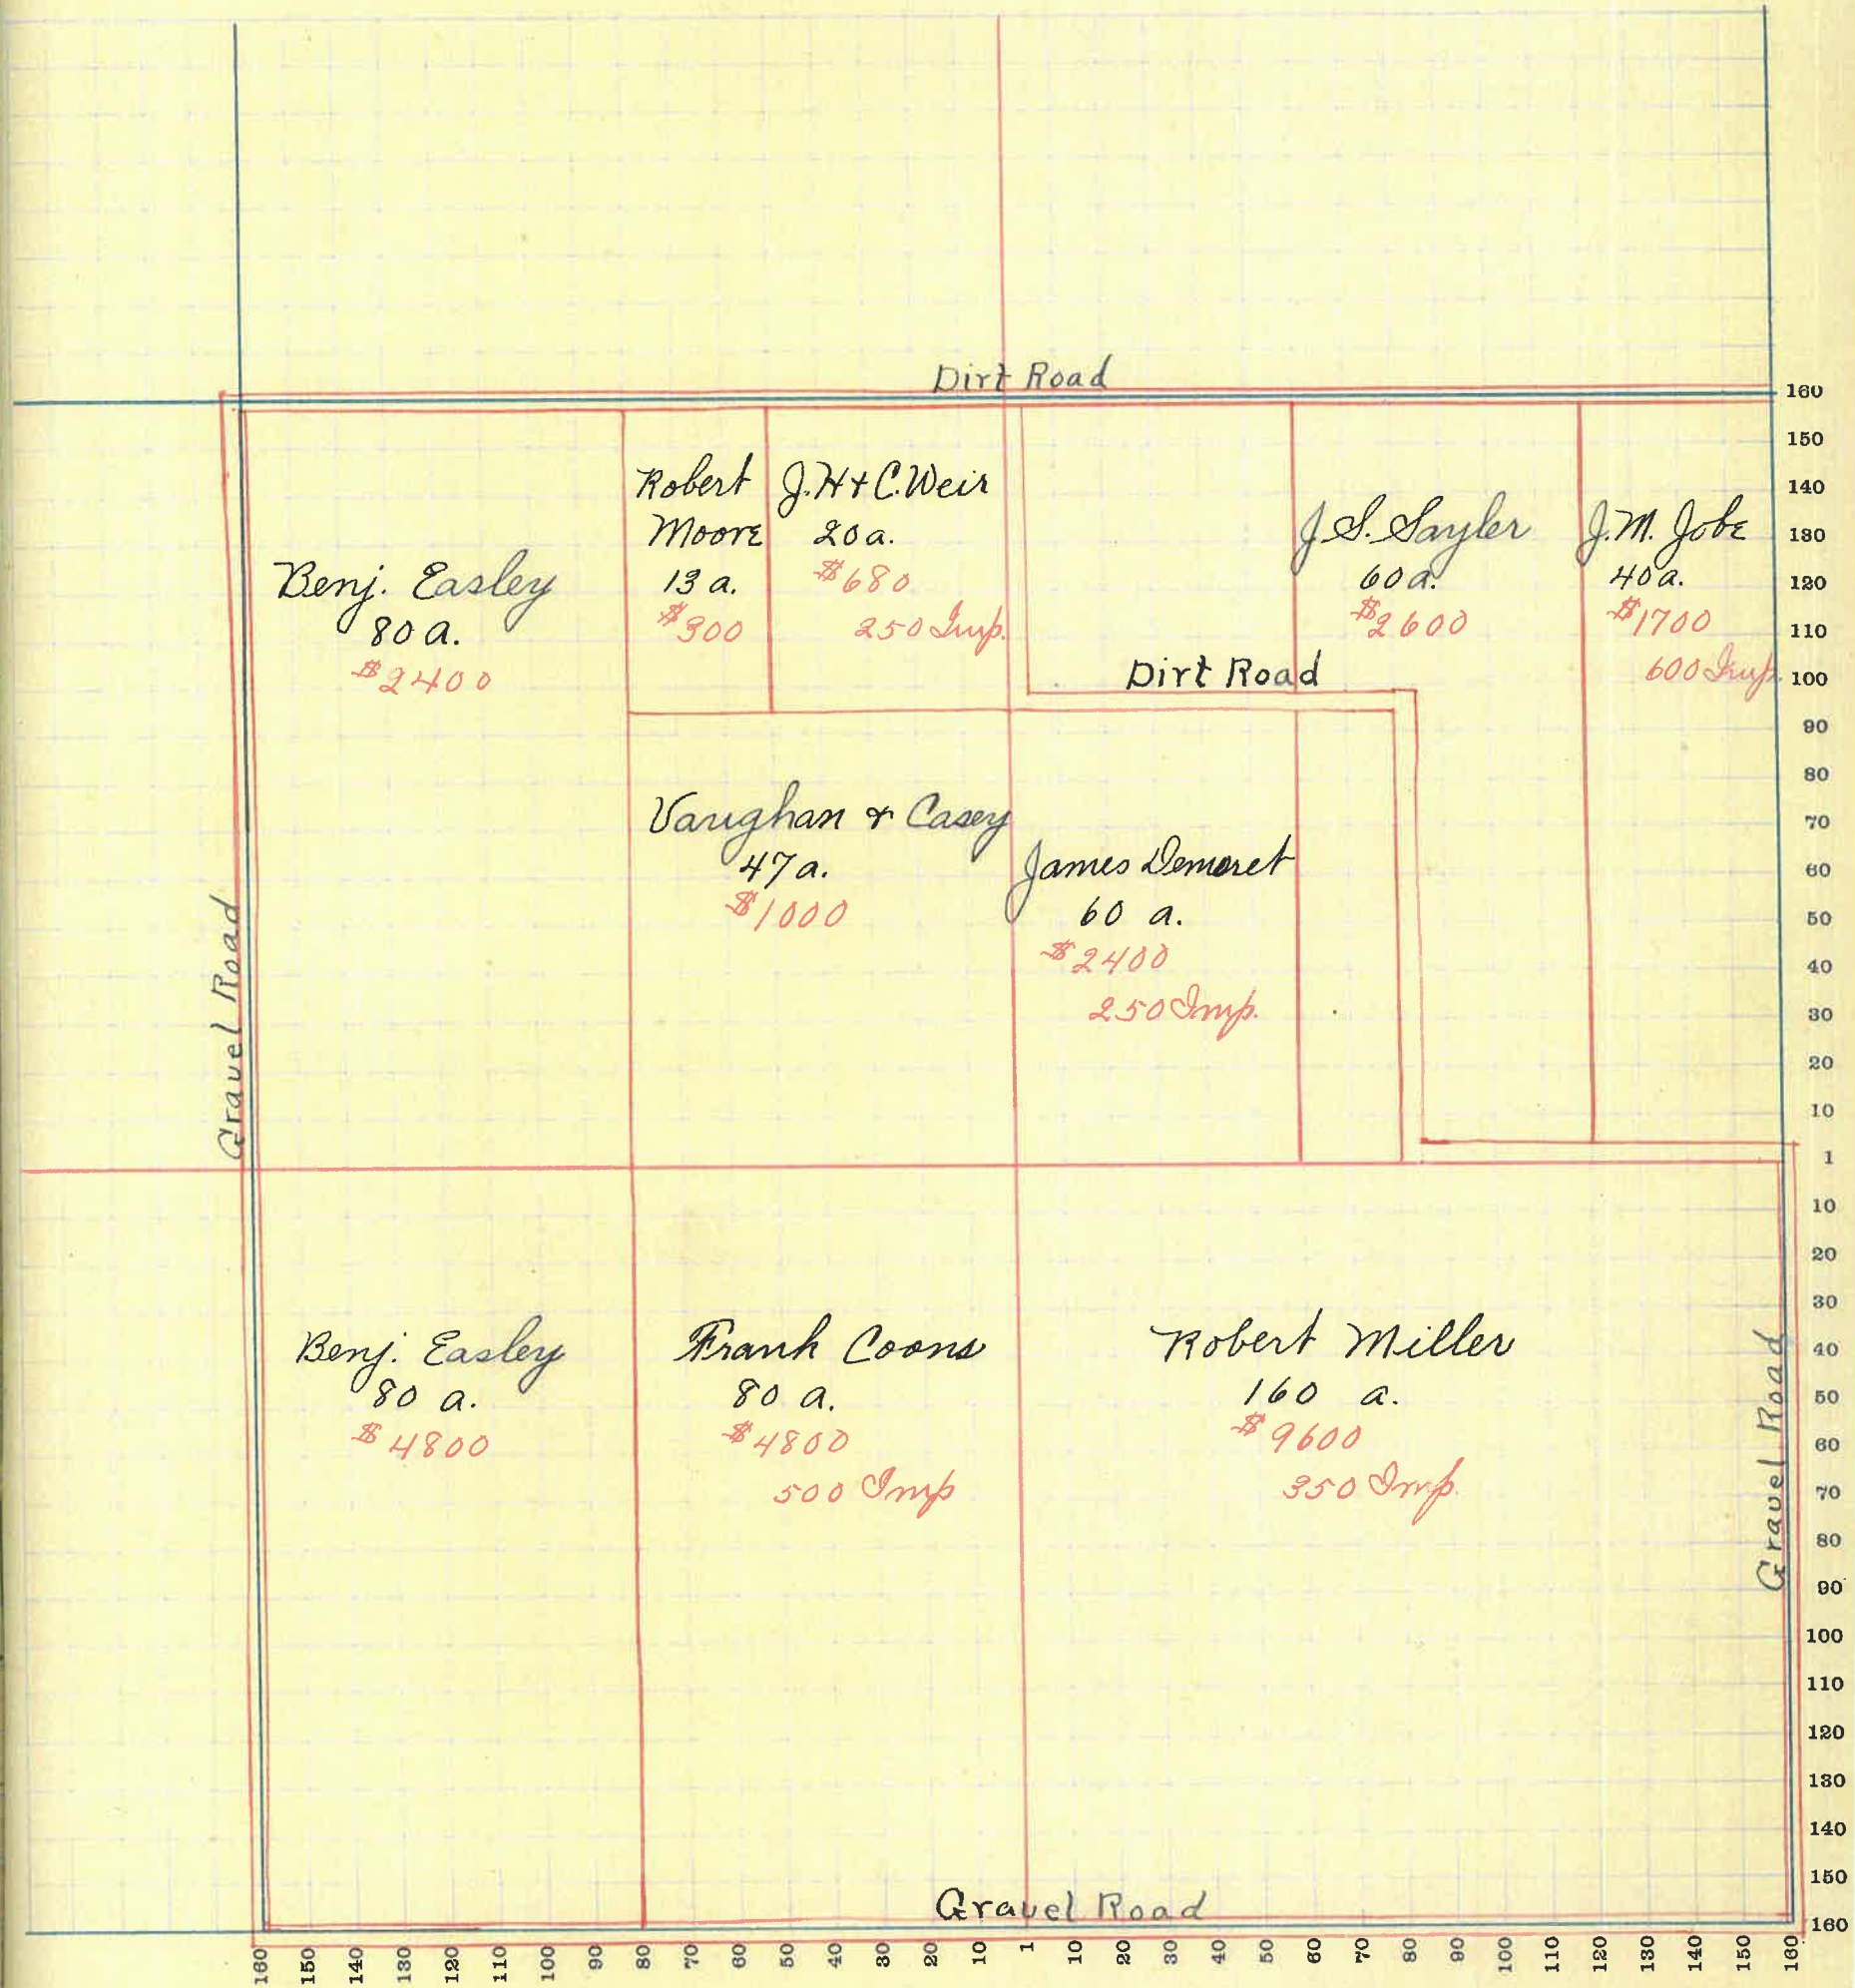 Dirt Road
Benj. Easley
80 a.
$2400
Robert
Moore
13 a.
$300
J.H & C. Weir
20 a.
$680
250 Imp.
J. S. Sayler
60 a.
$2600
J.M. Jobe
40 a.
$1700
600 Imp.
Dirt Road
Vaughan & Casey
47 a.
$1000
James Demoret
60 a.
$2400
250 Imp.
Gravel Road
Benj. Easley
80 a.
$4800
Frank Coons
80 a.
$4800
500 Imp
Robert Miller
160 a.
$9600
350 Imp.
Gravel Road
Gravel Road
160
150
140
130
120
110
100
90
80
70
60
50
40
30
20
10
1
10
20
30
40
50
60
70
80
90
100
110
120
130
140
150
160
160 150 140 130 120 110 100 90 80 70 60 50 40 30 20 10 1 10 20 30 40 50 60 70 80 90 100 110 120 130 140 150 160